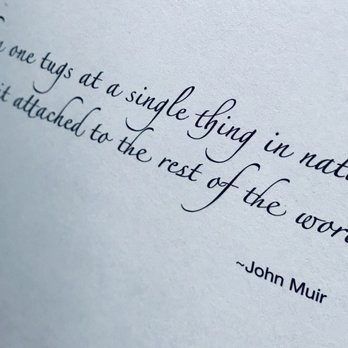 one tugs at a single thing in nat
it attached to the rest of the wor
~John Muir